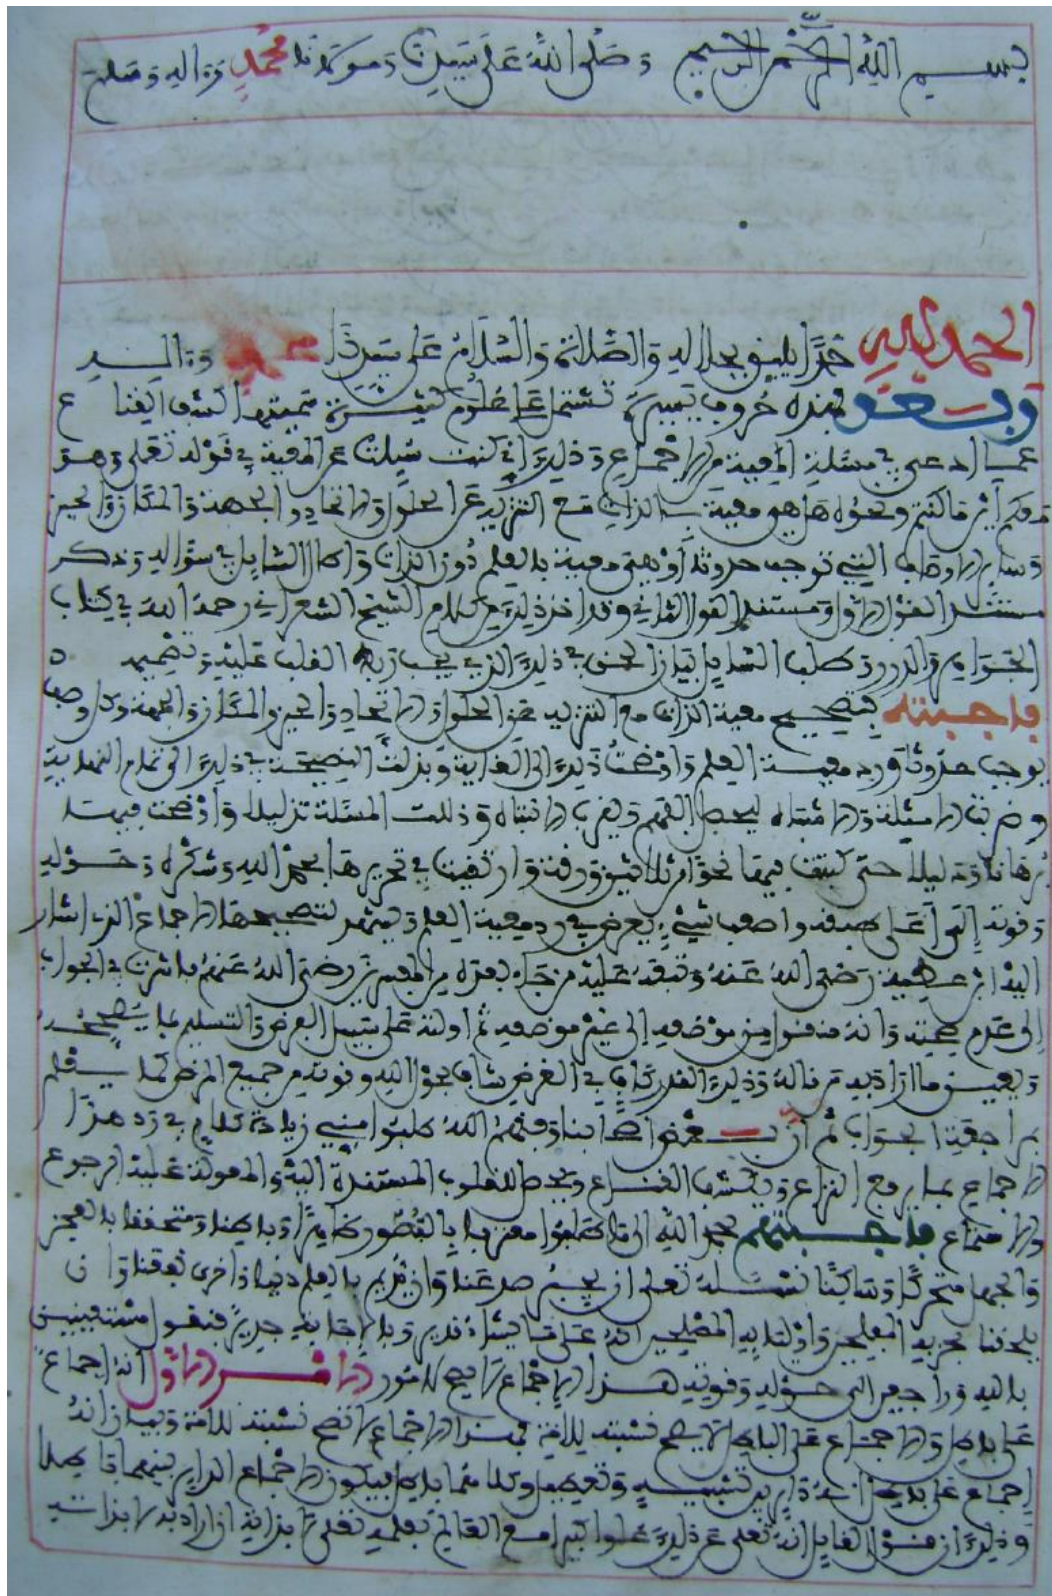 بسم الله الرحمن الرحيم وصلى الله على سيدنا ومولانا محمد وءاله وسلم
الحمد لله حمدا يليق بجلاله والصلاة والسلام على سيدنا محمد وءاله
وبعد فهذه حروف يسيرة تشتمل على علوم كثيرة سميتها كشف القناع
عما ادعي في مسئلة المعية من الاجماع وذلك اني كنت سئلت عن المعية في قوله تعلى وهو
معكم اين ما كنتم ونحوه هل هو معية بالذات مع التنزيه عن الحلول والاتحاد والجهة والمكان والحيز
وساير الاوصاف التي توجب حدوثا او هي معية بالعلم دون الذات واطال السايل في سؤاله وذكر
مستند القول الاول ومستند القول الثاني وقد اخذ ذلك من كلام الشيخ الشعراني رحمه الله في كتاب
الجواهر والدرر وطلب السايل بيان الحق في ذلك الذي يجب ربط القلب عليه وتصميمه
فاجبته بتصحيح معية الذات مع التنزيه عن الحلول والاتحاد والحيز والمكان والجهة وكل وصف
يوجب حدوثا ورد معية العلم وافضت ذلك الى الغاية وبذلت النصيحة في ذلك الى تمام النهاية
وضربت الامثلة والاشباه ليحصل الفهم ويقرب الانتباه وذللت المسئلة تذليلا واوضحت فيها
برهانا ودليلا حتى كتبت فيها نحوا من ثلاثين ورقة وارتقيت في تحريرها بحمد الله وشكره وحوله
وقوته الى اعلى طبقة واصعب شيء يعرض في رد معية العلم ويشهر لتصحيحها الاجماع الذي اشار
اليه ابن عطية رضي الله عنه وتبعه عليه من جاء بعده من المفسرين رضي الله عنهم فاشرت في الجواب
الى عدم صحته وانه منقول من موضعه الى غير موضعه ثم اولته على سبيل الفرض والتسليم بما يصححه
ويعين ما اراد به من قاله وذلك القدر كاف في الغرض شاف بحول الله وقوته من جميع المرض كما يعلم
بمراجعة الجواب ثم ان بعض اصحابنا وفقهم الله طلبوا مني زيادة كلام في رد هذا
الاجماع بما يرفع النزاع ويكشف القناع ويحصل للقلوب المستندة اليه والمعولة عليه الرجوع
والامتناع فاجبتهم بحمد الله الى ما طلبوا معترفا بالقصور ظاهرا وباطنا ومتحققا بالعجز
والجهل متحركا وساكنا نسئله تعلى ان يجبر صدعنا وان يكرم بالعلم دنيا واخرى بقعنا وان
يلحقنا بحزبه المفلحين واوليائه المصلحين انه على ما يشاء قدير وبالاجابة جدير فنقول مستعينين
بالله وراجعين الى حوله وقوته هذا الاجماع لا يصح لامور الامر الاول انه اجماع
على باطل والاجماع على الباطل لا يصح نسبته للامة فهذا الاجماع لا تصح نسبته للامة وبيان انه
اجماع على باطل انه داير بين تشبيه وتعطيل وكلاهما باطل فيكون الاجماع الداير بينهما باطلا
وذلك ان قول القايل انه تعلى عن ذلك علوا كبيرا مع العالم بعلمه تعلى لا بذاته ان اراد به لا بذاته